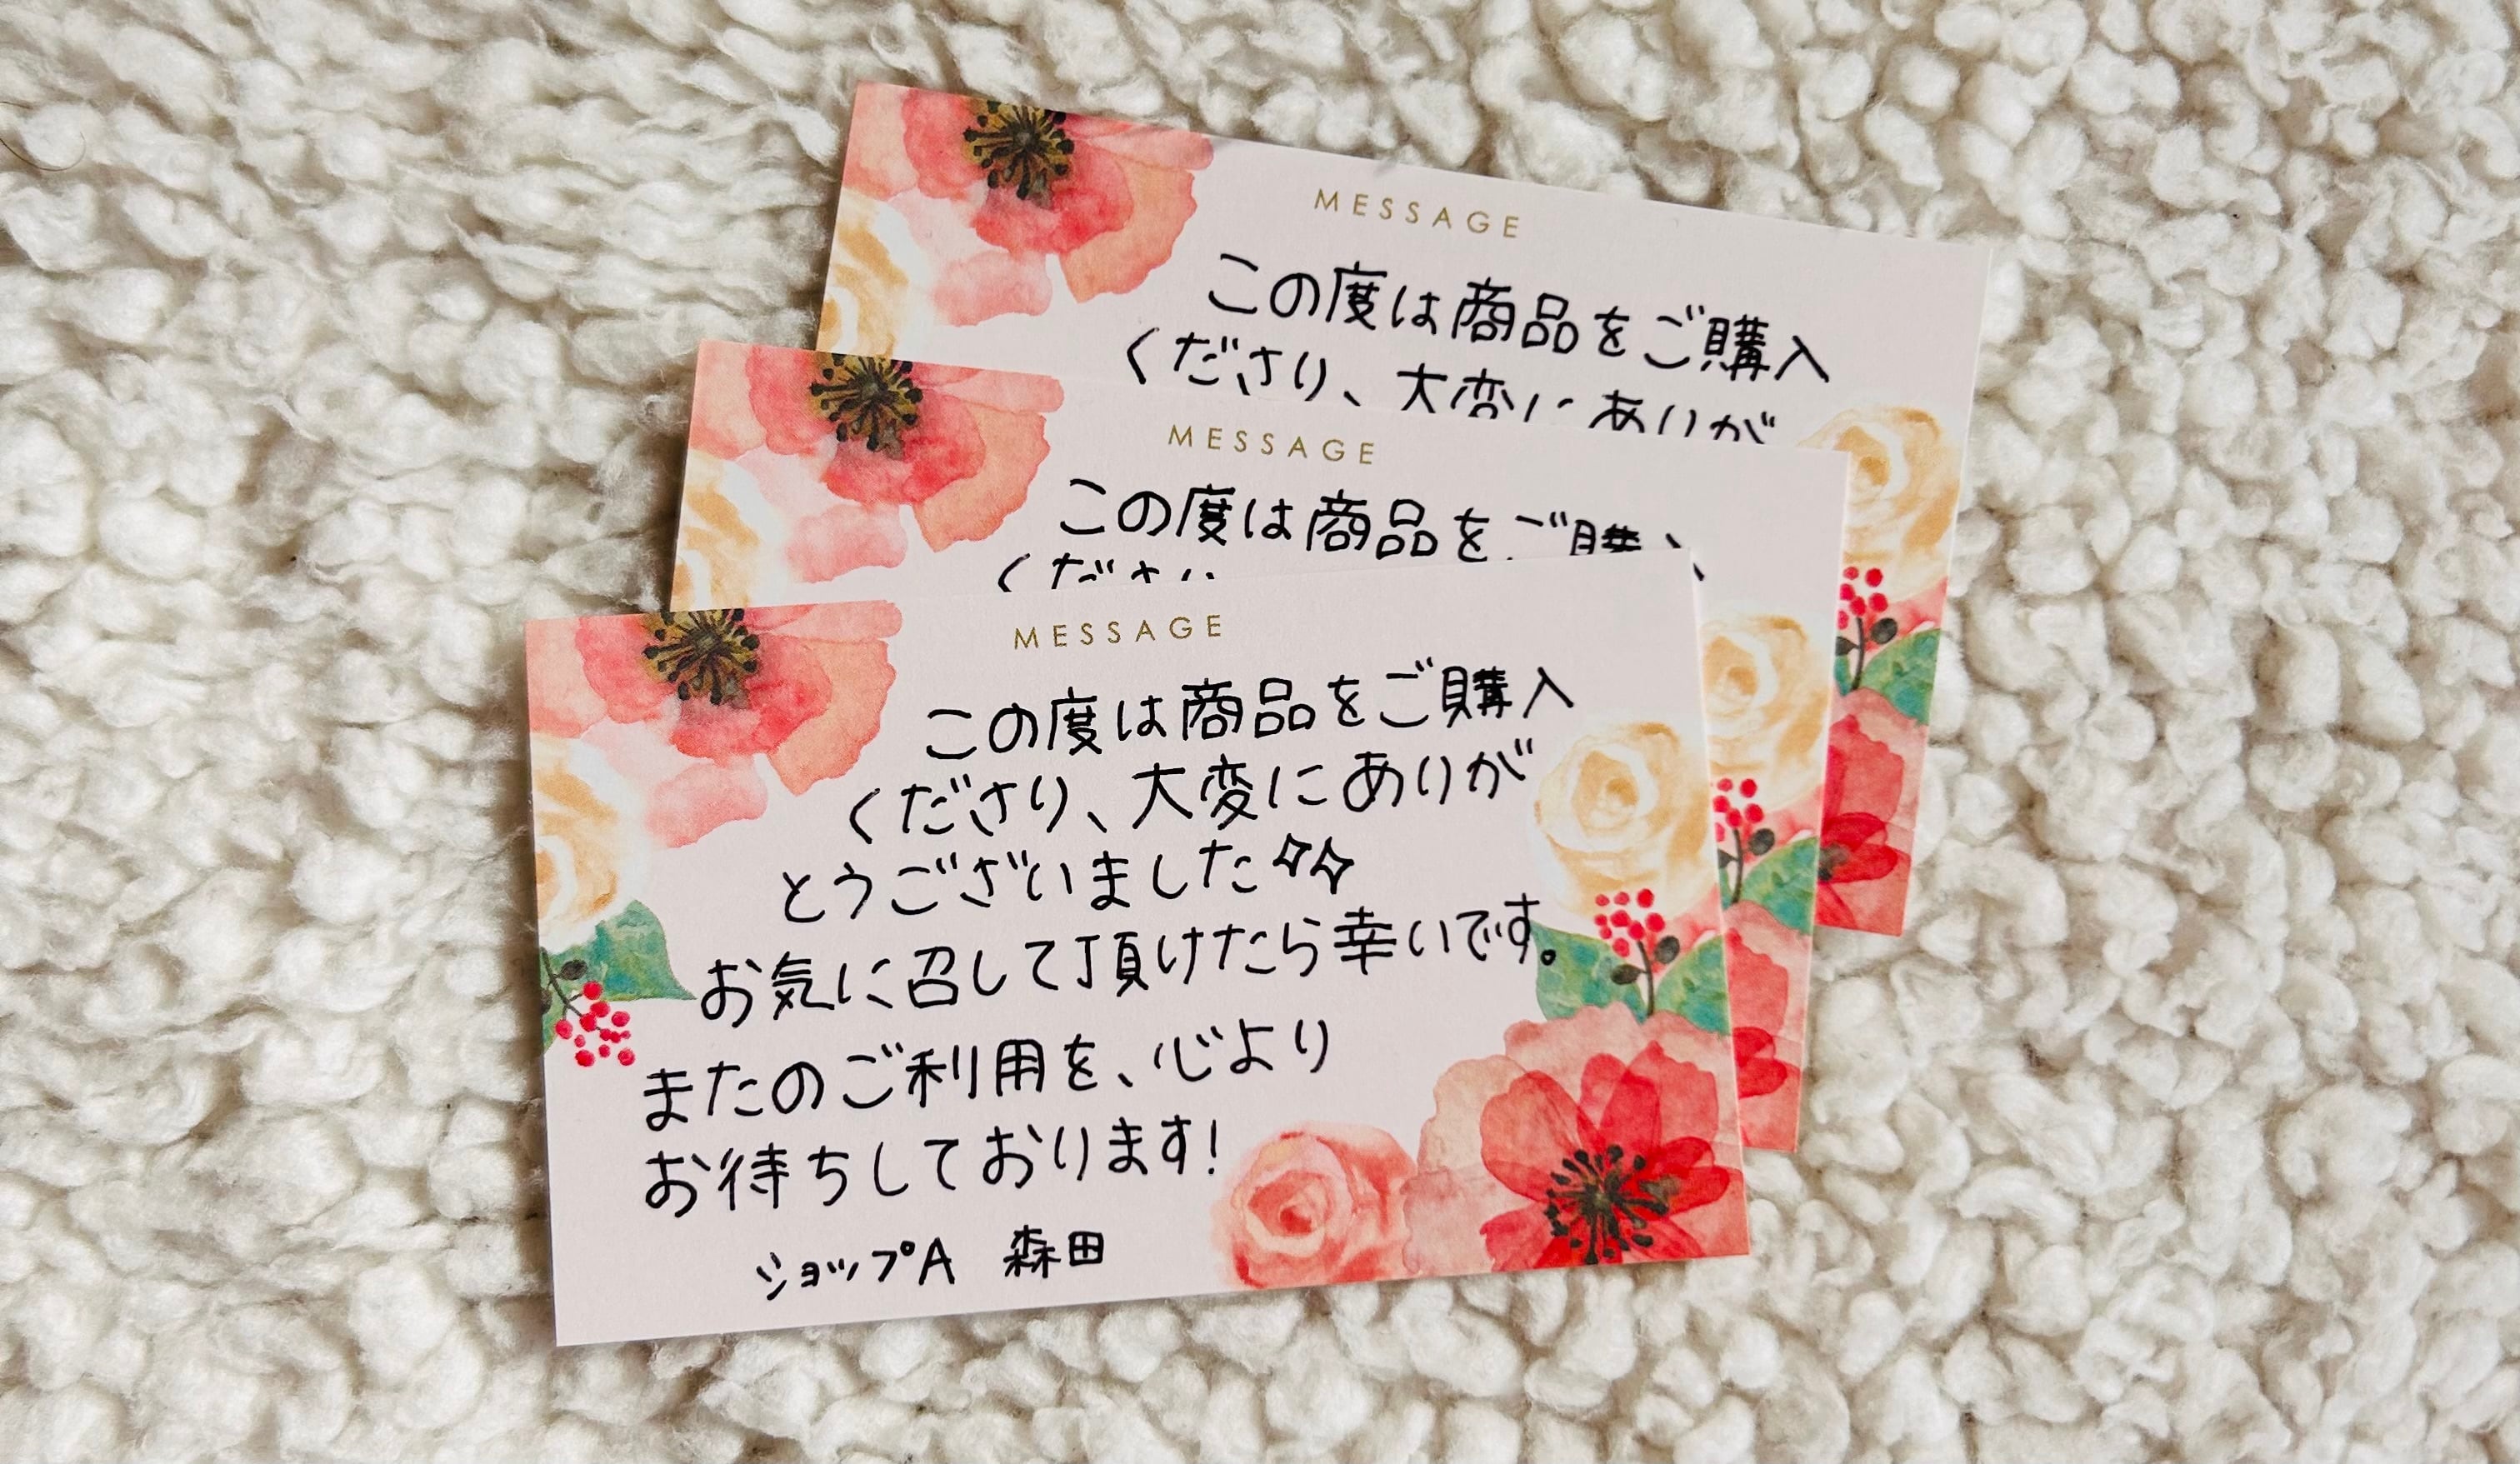 MESSAGE
この度は商品をご購入
くださり、大変にありが
MESSAGE
この度は商品をご購入
くださり
MESSAGE
この度は商品をご購入
くださり、大変にありが
とうございました✧✧
お気に召して頂けたら幸いです。
またのご利用を、心より
お待ちしております!
ショップA 森田